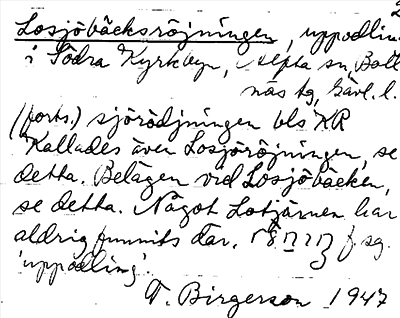 2
Losjöbäcksröjningen, uppodlin
i Södra Kyrkbyn, Alfta sn, Boll
näs tg, Gävl. l.
(forts.) sjörödjningen bls KR
Kallades även Losjöröjningen, se
detta. Belägen vid Losjöbäcken,
se detta. Något Lotjärnen har
aldrig funnits där. f sg.
'uppodling'.
T. Birgerson 1947